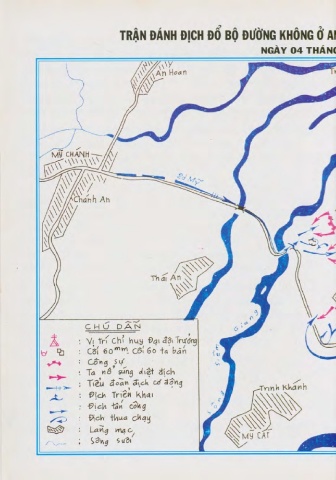 TRẬN ĐÁNH ĐỊCH ĐỔ BỘ ĐƯỜNG KHÔNG Ở
NGÀY 04 THÁNG
An Hoan
MỸ CHÁNH
Đi Mỹ
Chánh An
Thái An
CHÚ DẪN
: Vị trí Chỉ huy Đại đội Trưởng
: Cối 60mm Cối 60 ta bắn
: Công sự
: Ta nổ súng diệt địch
: Tiểu đoàn địch cơ động
: Địch Triển khai
: Địch tấn công
: Địch thua chạy
: Làng mạc,
: Sông suối
Trinh Khánh
MỸ CÁT